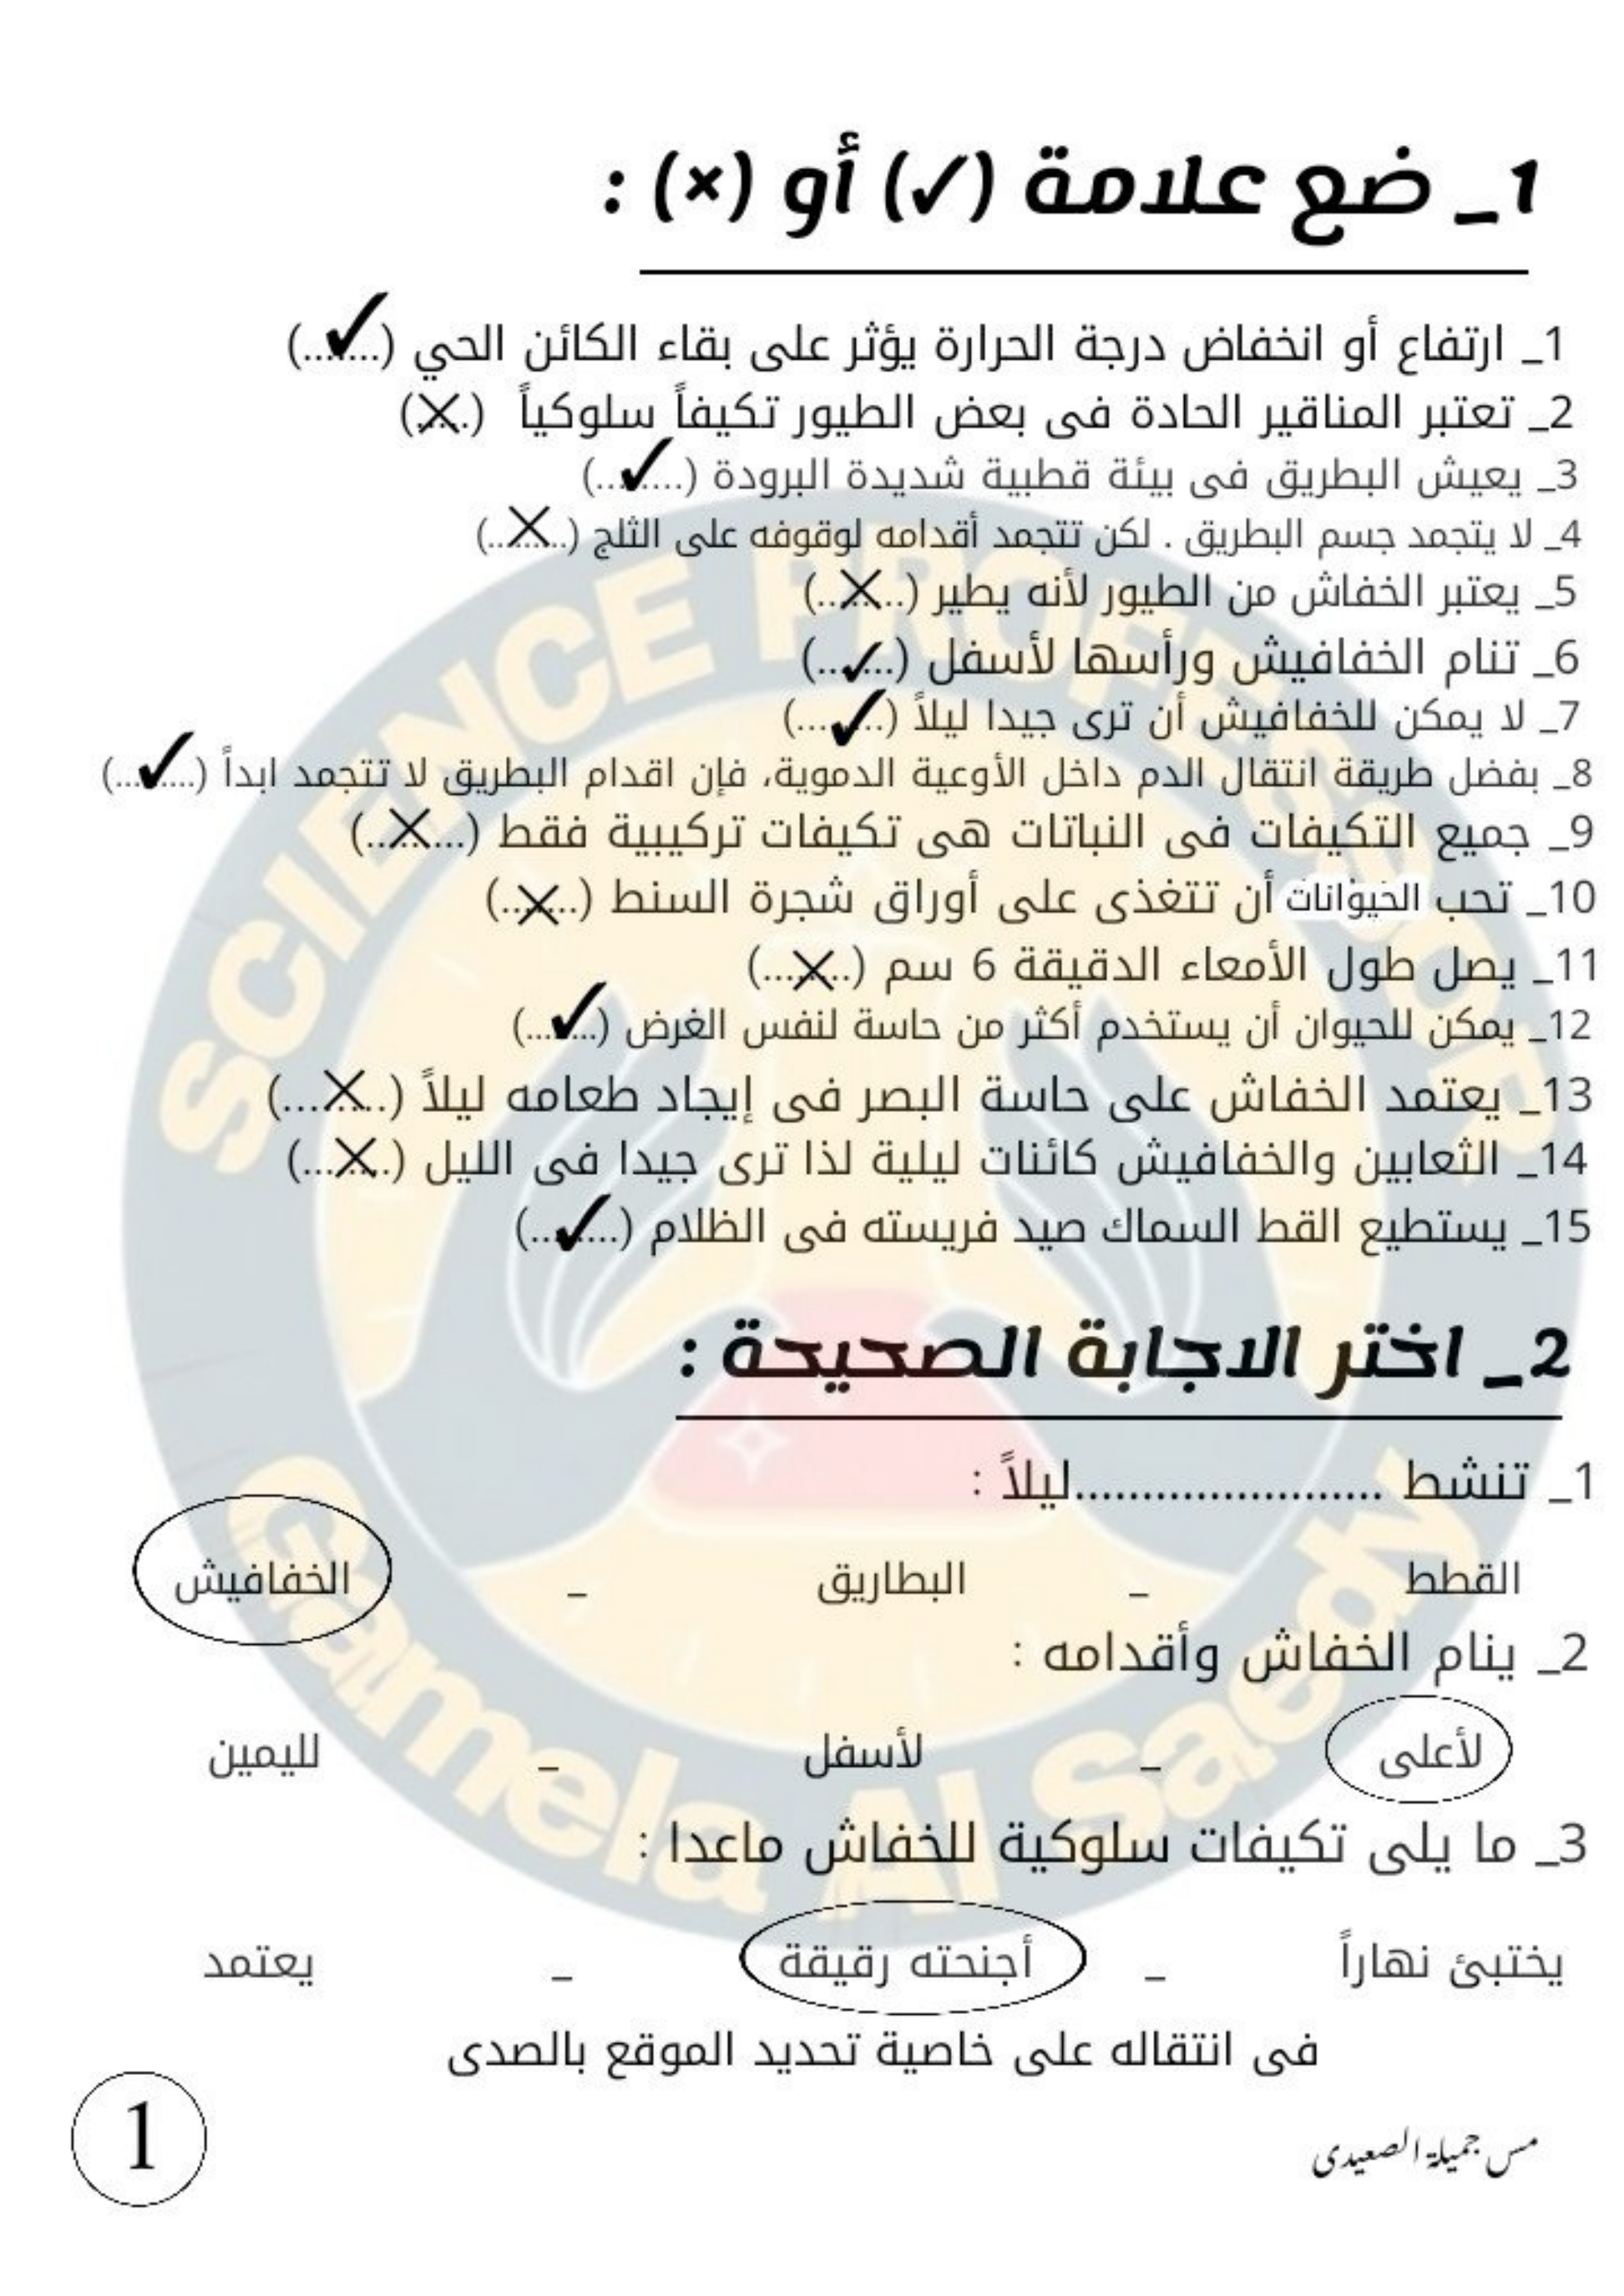 1_ ضع علامة (✓) أو (×) :
1_ ارتفاع أو انخفاض درجة الحرارة يؤثر على بقاء الكائن الحي (...✓....)
2_ تعتبر المناقير الحادة فى بعض الطيور تكيفاً سلوكياً (.X.)
3_ يعيش البطريق فى بيئة قطبية شديدة البرودة (...✓....)
4_ لا يتجمد جسم البطريق . لكن تتجمد أقدامه لوقوفه على الثلج (...X....)
5_ يعتبر الخفاش من الطيور لأنه يطير (...X...)
6_ تنام الخفافيش ورأسها لأسفل (...✓...)
7_ لا يمكن للخفافيش أن ترى جيدا ليلاً (...✓....)
8_ بفضل طريقة انتقال الدم داخل الأوعية الدموية، فإن اقدام البطريق لا تتجمد ابداً (...✓....)
9_ جميع التكيفات فى النباتات هى تكيفات تركيبية فقط (...X....)
10_ تحب الحيوانات أن تتغذى على أوراق شجرة السنط (...X...)
11_ يصل طول الأمعاء الدقيقة 6 سم (...X....)
12_ يمكن للحيوان أن يستخدم أكثر من حاسة لنفس الغرض (...✓...)
13_ يعتمد الخفاش على حاسة البصر فى إيجاد طعامه ليلاً (...X....)
14_ الثعابين والخفافيش كائنات ليلية لذا ترى جيدا فى الليل (...X....)
15_ يستطيع القط السماك صيد فريسته فى الظلام (...✓....)
2_ اختر الاجابة الصحيحة :
1_ تنشط .......................ليلاً :
القطط _ البطاريق _ الخفافيش
2_ ينام الخفاش وأقدامه :
لأعلى _ لأسفل _ لليمين
3_ ما يلى تكيفات سلوكية للخفاش ماعدا :
يختبئ نهاراً _ أجنحته رقيقة _ يعتمد
فى انتقاله على خاصية تحديد الموقع بالصدى
مس جميلة الصعيدى
1
SCIENCE PROFESSOR
Gamela Al Saedy